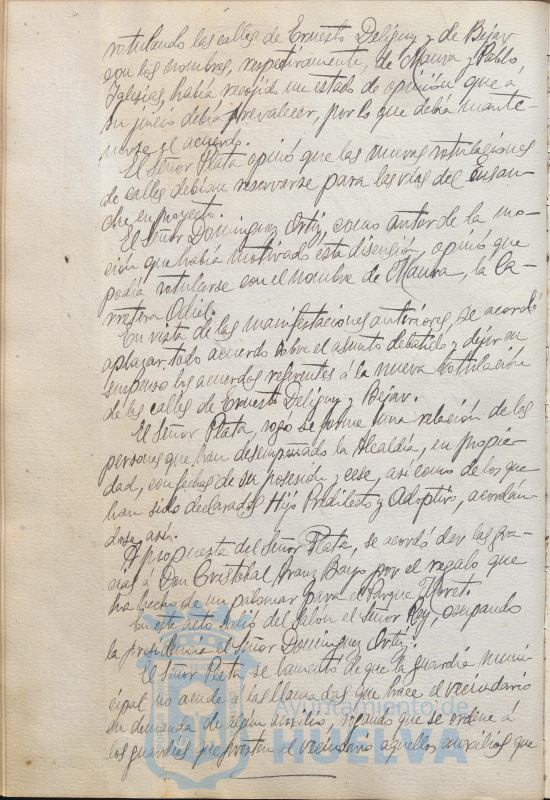 rotulando las calles de Ernesto Deligny y de Bejar
con los nombres, respectivamente, de Maura y Pablo
Iglesias, había recogido un estado de opinión que á
su juicio debía prevalecer, por lo que debía mante-
nerse el acuerdo.
El Señor Plata opinó que las nuevas rotulaciones
de calles debían reservarse para las vías del Ensan-
che en proyecto.
El Señor Dominguez Ortiz, como autor de la mo-
ción que había motivado esta discusión, opinó que
podía rotularse con el nombre de Maura, la Ca-
rretera Odiel.
En vista de las manifestaciones anteriores, se acordó
aplazar todo acuerdo sobre el asunto debatido y dejar en
suspenso los acuerdos referentes á la nueva rotulación
de las calles de Ernesto Deligny y Bejar.
El Señor Plata, rogó se forme una relación de las
personas que han desempeñado la Alcaldía, en propie-
dad, con fechas de su posesión y cese, así como de los que
han sido declarados Hijo Predilecto y Adoptivo, acordán-
dose así.
A propuesta del Señor Plata, se acordó dar las gra-
cias á Don Cristobal Bayo por el regalo que
ha hecho de un palomar para el Parque
En este acto salió del Salón el Señor Rey, ocupando
la presidencia el Señor Dominguez Ortiz.
El Señor Plata se lamentó de que la guardia muni-
cipal no acude á las llamadas que hace el vecindario
en demanda de algun auxilio, rogando que se ordene á
los guardias que presten al vecindario aquellos auxilios que
Ayuntamiento de
HUELVA